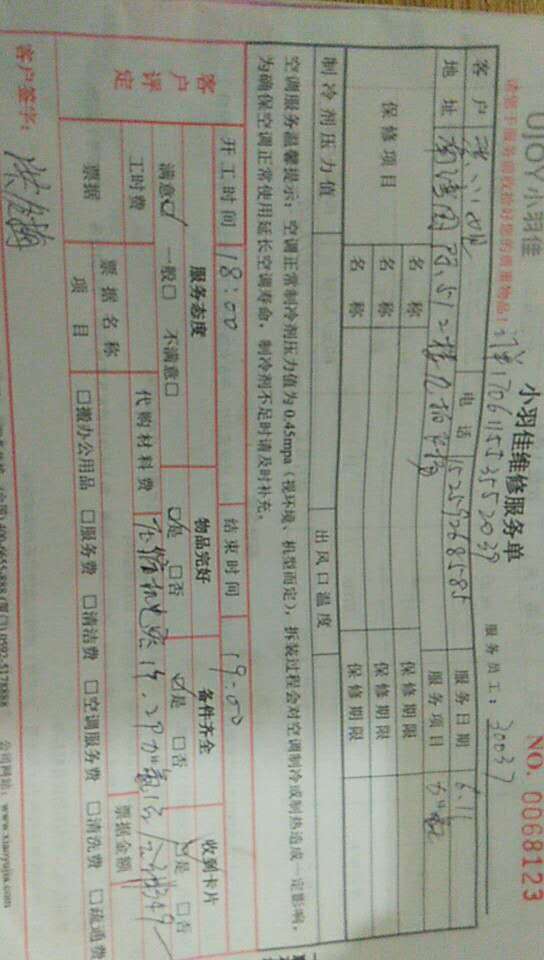 UJOY小羽佳 小羽佳维修服务单 NO. 0068123
请留卡服务前收拾好您的贵重物品！ 17061155352039 服务员工：30037
客户 电话 15259268585 服务日期 6.11
地址 服务项目 加氟
保修项目 名称 保修期限
名称 保修期限
名称 保修期限
制冷剂压力值 出风口温度
空调服务温馨提示：空调正常制冷剂压力值为 0.45mpa（视环境、机型而定），拆装过程会对空调制冷或制热造成一定影响，
为确保空调正常使用延长空调寿命，制冷剂不足时请及时补充。
开工时间 18:00 结束时间 19:00
客户评定 服务态度 物品完好 备件齐全 收到卡片
满意☑ 一般□ 不满意□ ☑是 □否 ☑是 □否 ☑是 □否
工时费 代购材料费
票据 票据名称 票据金额
项目 □搬办公用品 □服务费 □清洁费 □空调服务费 □清洗费 □疏通费
客户签字：
400-6655-888 (厦门) 0592-5178888 公司网站：www.xiaoyujia.com